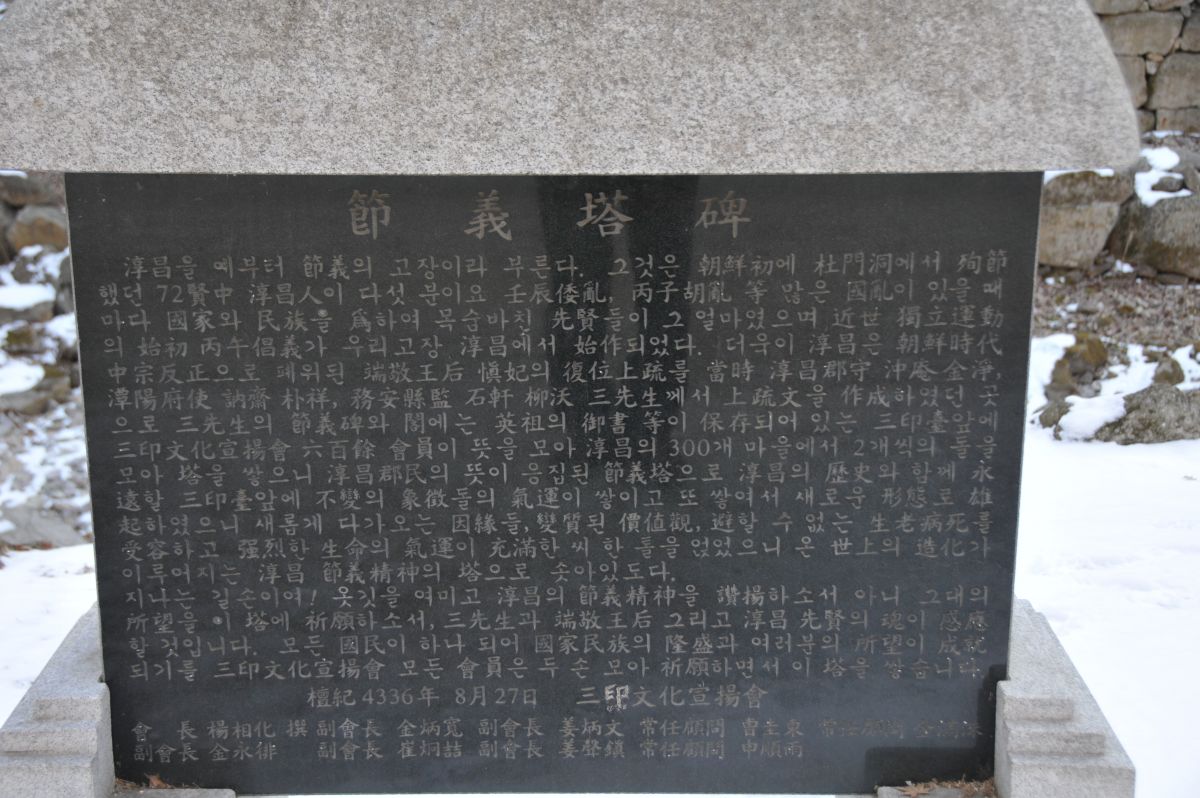 節義塔碑
淳昌을 예부터 節義의 고장이라 부른다. 그것은 朝鮮初에 杜門洞에서 殉節
했던 72賢中 淳昌人이 다섯 분이요 壬辰倭亂, 丙子胡亂 等 많은 國亂이 있을 때
마다 國家와 民族을 爲하여 목숨 바친 先賢들이 그 얼마였으며 近世 獨立運動
의 始初 丙午倡義가 우리고장 淳昌에서 始作되었다. 더욱이 淳昌은 朝鮮時代
中宗反正으로 폐위된 端敬王后 愼妃의 復位上疏를 當時 淳昌郡守 沖庵 金淨,
潭陽府使 訥齋 朴祥, 務安縣監 石軒 柳沃 三先生께서 上疏文을 作成하였던 곳
으로 三先生의 節義碑와 閣에는 英祖의 御書等이 保存되어 있는 三印臺앞에
三印文化宣揚會 六百餘 會員이 뜻을 모아 淳昌의 300개 마을에서 2개씩의 돌을
모아 塔을 쌓으니 淳昌郡民의 뜻이 응집된 節義塔으로 淳昌의 歷史와 함께 永
遠할 三印臺앞에 不變의 象徵돌의 氣運이 쌓이고 또 쌓여서 새로운 形態로 雄
起하였으니 새롭게 다가오는 因緣들, 變質된 價値觀, 避할 수 없는 生老病死를
受容하고 强烈한 生命의 氣運이 充滿한 씨 한 톨을 얹었으니 온 世上의 造化가
이루어지는 淳昌 節義精神의 塔으로 솟아있도다.
지나는 길손이여! 옷깃을 여미고 淳昌의 節義精神을 讚揚하소서 아니 그대의
所望을 이 塔에 祈願하소서, 三先生과 端敬王后 그리고 淳昌 先賢의 魂이 感應
할것입니다. 모든 國民이 하나 되어 國家民族의 隆盛과 여러분의 所望이 成就
되기를 三印文化宣揚會 모든 會員은 두 손 모아 祈願하면서 이 塔을 쌓습니다.
檀紀 4336年 8月27日 三印文化宣揚會
會長 楊相化 撰 副會長 金炳寬 副會長 姜炳文 常任顧問 曺圭東 常任顧問
副會長 金永徘 副會長 崔炯喆 副會長 姜聲鎭 常任顧問 申順雨